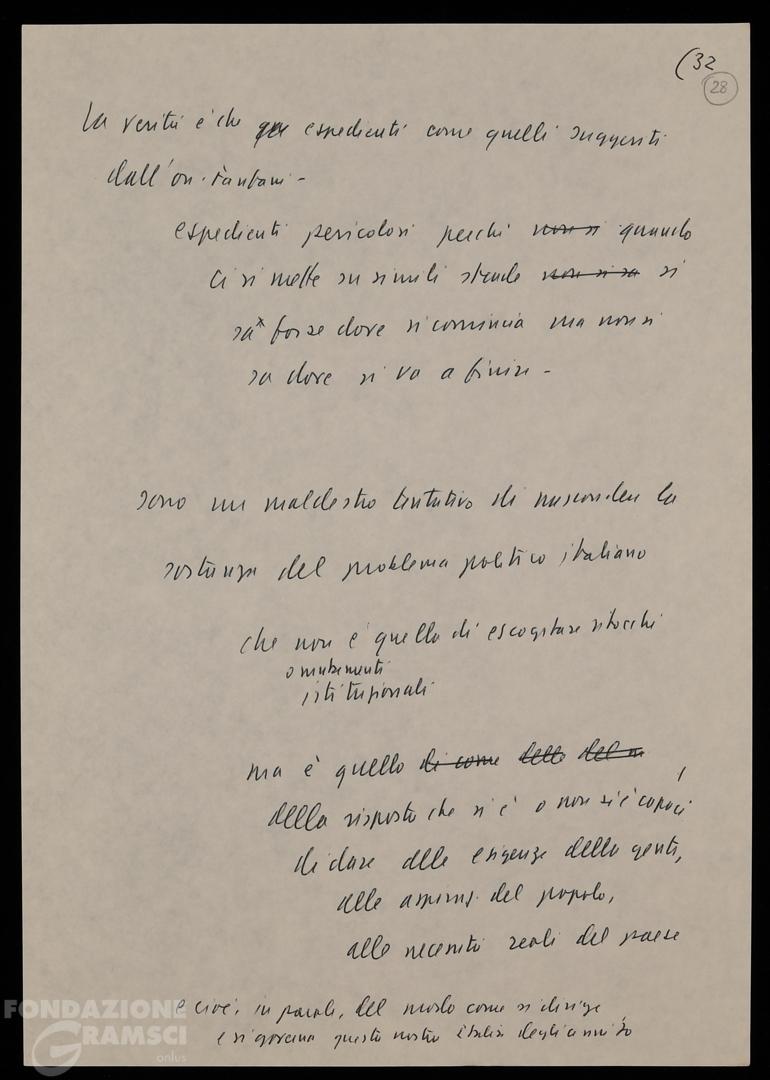 (32
28
La verità è che espedienti come quelli suggeriti
dall'on. Fanfani -
espedienti pericolosi perché non si quando
ci si mette su simili strade non si sa si
sa* forse dove si comincia ma non si
sa dove si va a finire -
sono un maldestro tentativo di nascondere la
sostanza del problema politico italiano
che non è quello di escogitare ritocchi
o mutamenti
istituzionali
ma è quello di come delle del
della risposta che si è o non si è capaci
di dare alle esigenze della gente,
alle aspiraz. del popolo,
alle necessità reali del paese
e cioè, in parole, del modo come si dirige
e si governa questa nostra Italia degli anni '80
FONDAZIONE
GRAMSCI
onlus